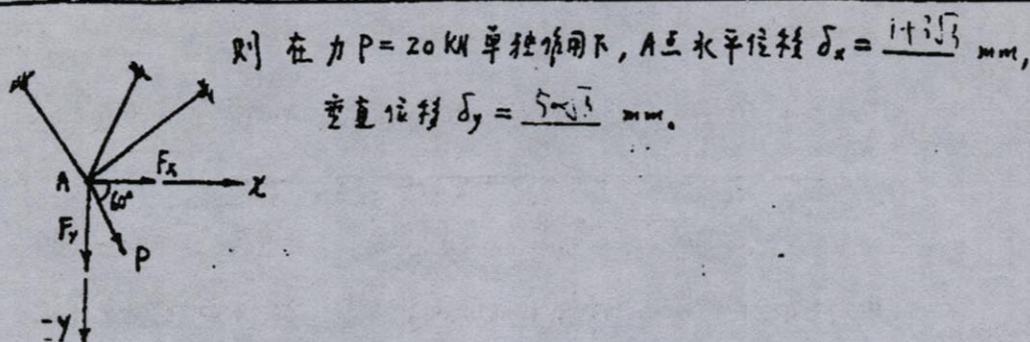 则 在 力 P = 20 KN 单独作用下, A点 水平位移 δx = 1+3√3 mm,
垂直位移 δy = 5-√3 mm。
Fx
A
x
60°
Fy
P
-y